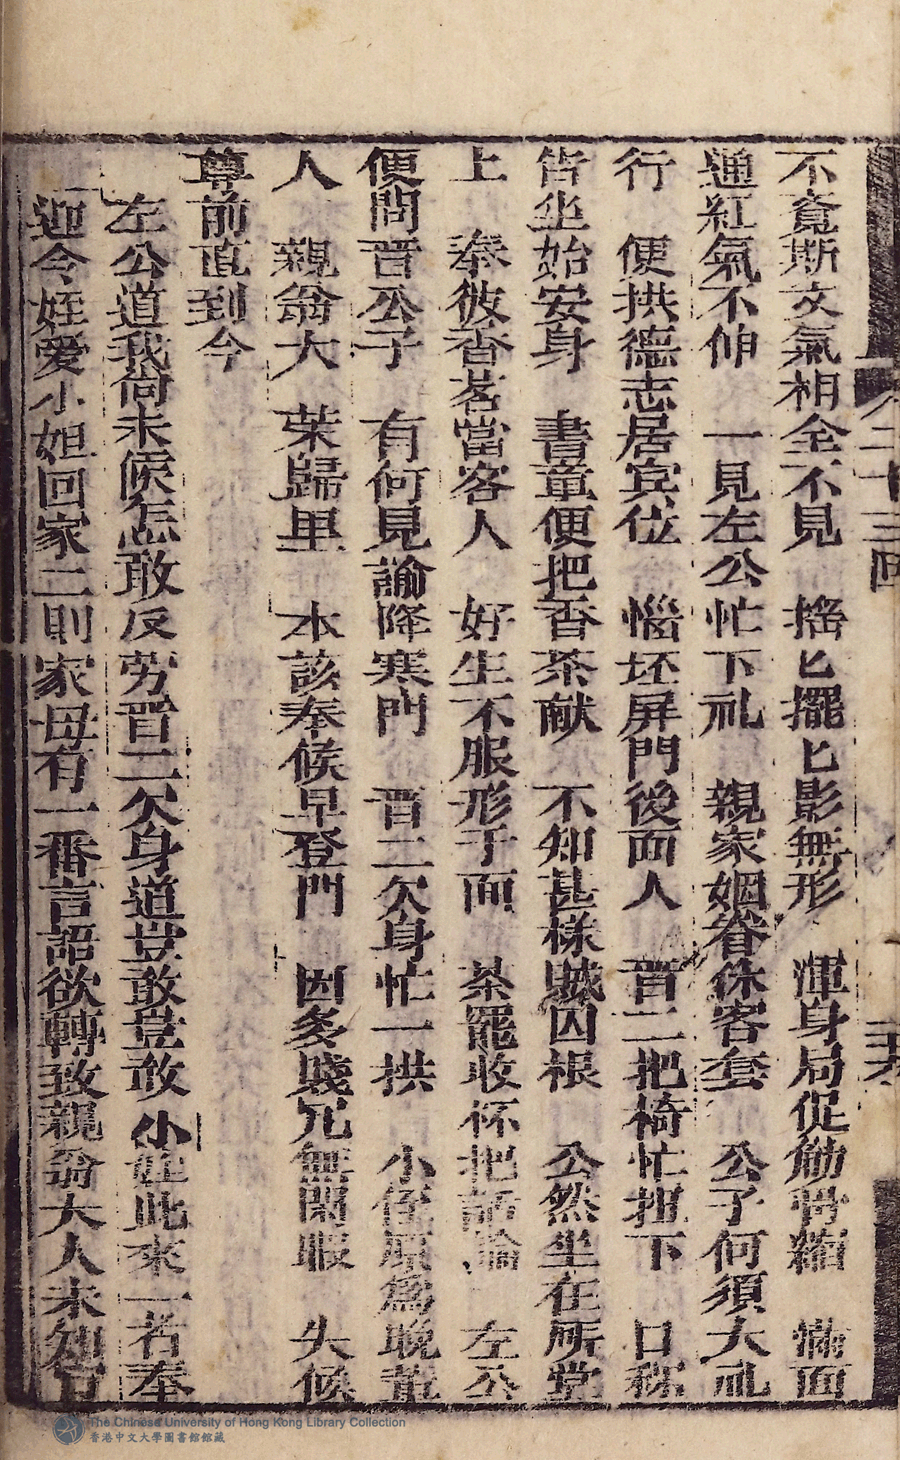 不竟斯文氣相全不見　搖匕擺匕影無形　渾身局促觔骨縮　滿面
通紅氣不伸　一見左公忙下礼　親家姻眷侏客套　公子何須大礼
行　便拱德志居賓位　惱坯屏門後面人　晋二把椅忙担下　口称
告坐始安身　書童便把香茶献　不知甚樣賊囚根　公然坐在所堂
上　奉彼香茗當客人　好生不服形于面　茶罷收杯把話論　左公
便問晋公子　有何見諭降寒門　晋二欠身忙一拱　小侄原為晚輩
人　親翁大　荣歸里　本該奉候早登門　因多賤冗無閑暇　失候
尊前直到今
左公道我尚未候怎敢反劳晋二欠身道豈敢豈敢小侄此來一者奉
迎令姪愛小姐回家二則家母有一番言語欲轉致親翁大人未知
二十三回
The Chinese University of Hong Kong Library Collection
香港中文大學圖書館館藏